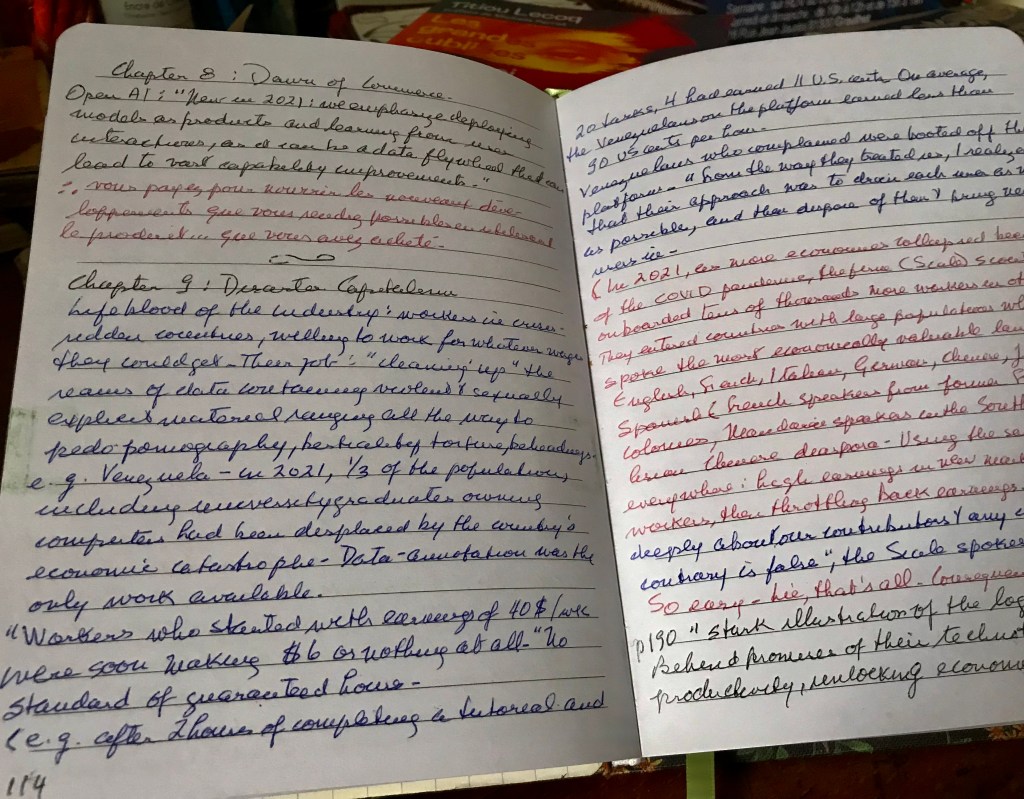 Titiou Lecoq
Les
grand
oubli
Chapter 8 : Dawn of Commerce -
Open AI : "New in 2021 : we emphasize deploying
models as products and learning from user
interactions, as it can be a data flywheel that can
lead to vast capability improvements."
∴ vous payez pour nourrir les nouveaux déve-
loppements que vous rendez possibles en utilisant
le produit... que vous avez acheté -
Chapter 9 : Disaster Capitalism
Lifeblood of the industry : workers in crisis-
ridden countries, willing to work for whatever wages
they could get - Their job : "cleaning up" the
reams of data containing violent & sexually
explicit material ranging all the way to
pedo pornography, bestiality torture, beheadings.
e.g. Venezuela - in 2021, 1/3 of the population,
including university graduates owning
computers had been displaced by the country's
economic catastrophe - Data-annotation was the
only work available.
"Workers who started with earnings of 40$/wk
were soon making $6 or nothing at all - "No
standard of guaranteed hours -
(e.g. after 2 hours of completing a tutorial and
114
20 tasks, 4 had earned 11 U.S. cents On average,
the Venezuelans on the platform earned less than
90 US cents per hour -
Venezuelans who complained were booted off the
platform - "from the way they treated us, I realize
that their approach was to drain each user as
as possible, and then dispose of them & bring
users in -
(In 2021, as more economies collapsed
of the COVID pandemic, the firm (Scale)
onboarded tens of thousands more workers
They entered countries with large populations
spoke the most economically valuable
English, French, Italian, German, Chinese,
Spanish (French speakers from former
colonies, Mandarin speakers in the South
Asian Chinese diaspora - Using the
everywhere : high earnings in new
workers, then throttling back earnings
deeply about our contributors & any
contrary is false", the Scale
So easy - lie, that's all -
p190 "Stark illustration of the
Behind promises of their
productivity, unlocking